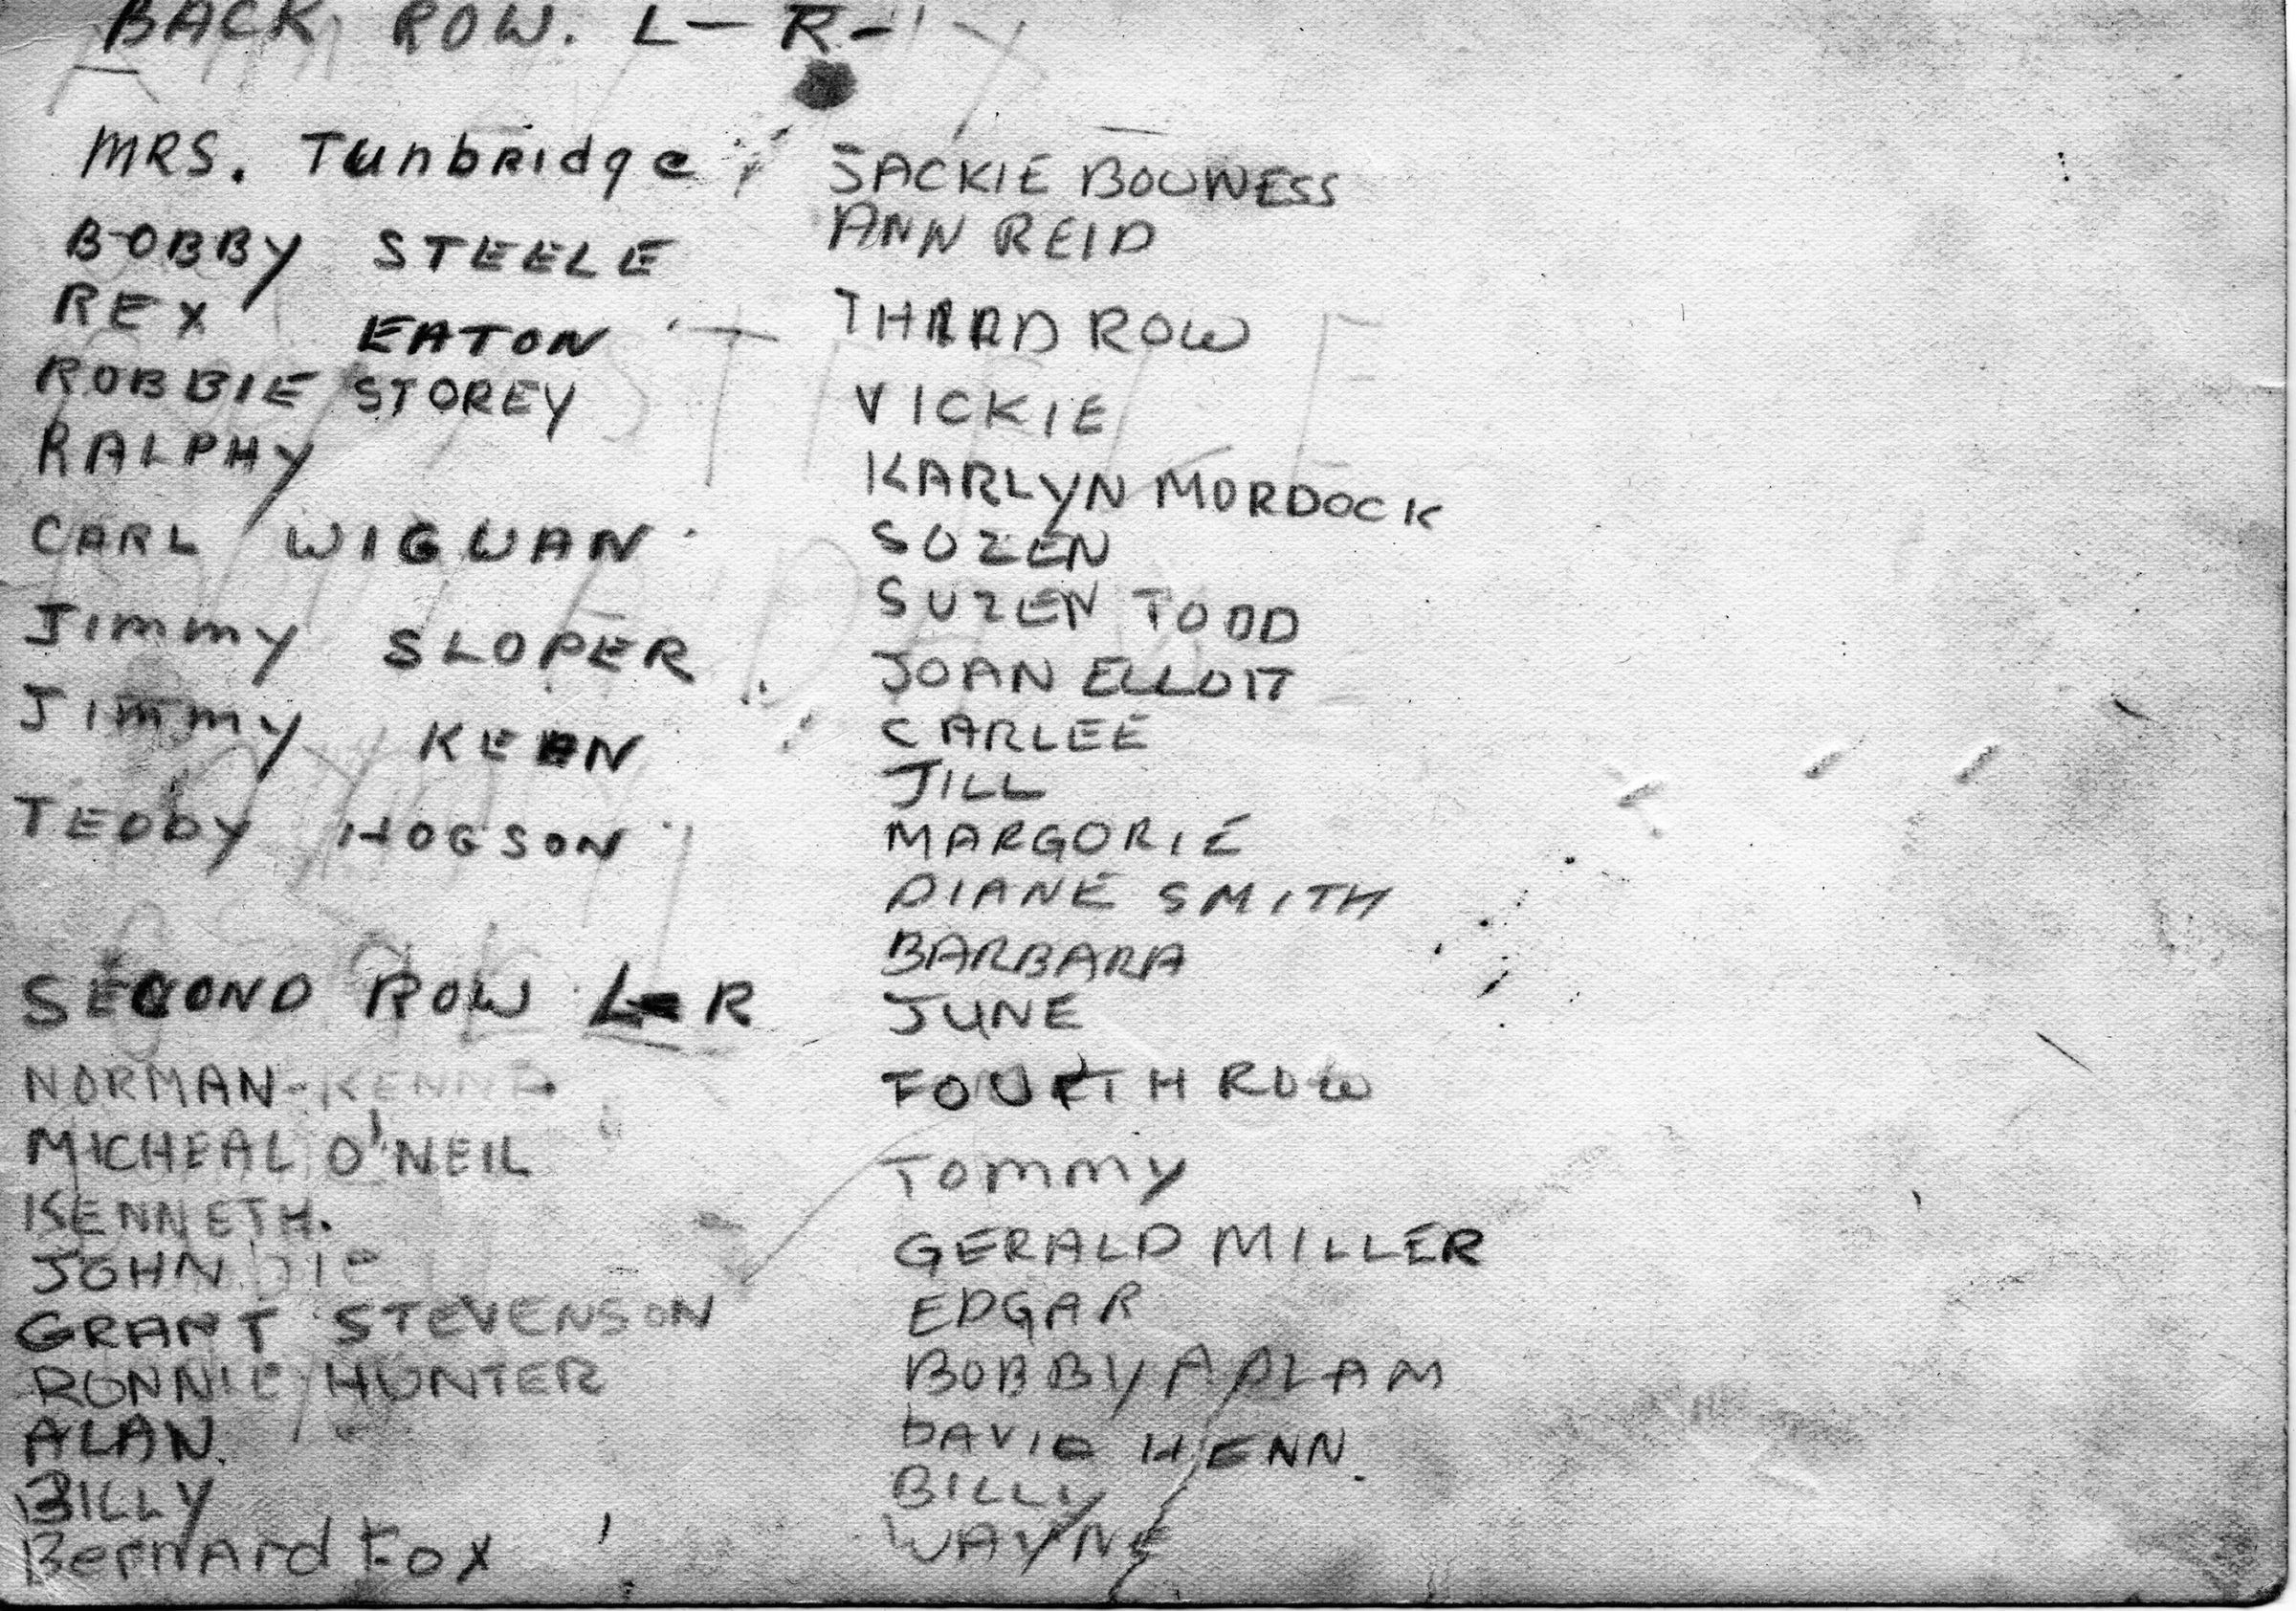 BACK ROW. L - R -
MRS. Tunbridge
BOBBY STEELE
REX EATON
ROBBIE STOREY
RALPHY
CARL WIGWAN
Jimmy SLOPER
Jimmy KEEN
TEDDY HOGSON
SECOND ROW L-R
NORMAN-
MICHEAL O'NEIL
KENNETH.
JOHN
GRANT STEVENSON
RONNIE HUNTER
ALAN.
BILLY
Bernard Fox
JACKIE BOUWESS
ANN REID
THIRD ROW
VICKIE
KARLYN MORDOCK
SUZEN
SUZEN TODD
JOAN ELLOIT
CARLEE
JILL
MARGORIE
DIANE SMITH
BARBARA
JUNE
FOURTH ROW
Tommy
GERALD MILLER
EDGAR
BOBBY ADLAM
DAVID HENN.
BILLY
WAYNE